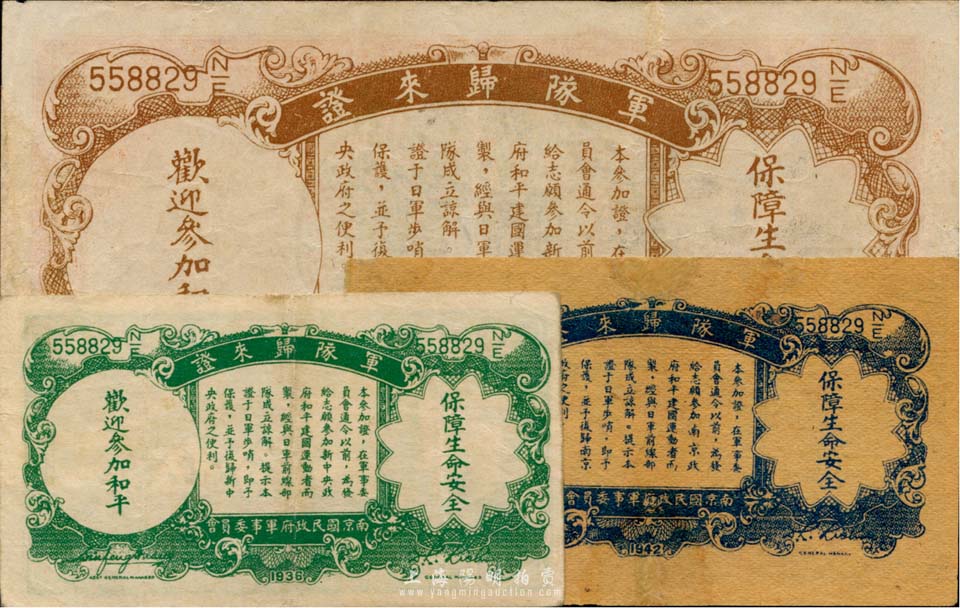 558829 N/E
558829 N/E
軍隊歸來證
保障生
本參加證，在
員會通令以前
給志願參加新
府和平建國運
製，經與日軍
隊成立諒解。
證于日軍步哨
保護，並予復
央政府之便利
歡迎參加和
558829 N/E
558829 N/E
軍隊歸來證
保障生命安全
本參加證，在軍事委
員會通令以前，為發
給志願參加新中央政
府和平建國運動者而
製，經與日軍前線部
隊成立諒解。提示本
證于日軍步哨，即予
保護，並予復歸新中
央政府之便利。
歡迎參加和平
南京國民政府軍事委員會
ASST GENERAL MANAGER
1936
GENERAL MANAGER
558829 N/E
軍隊歸來
保障生命安全
本參加證，在軍事委
員會通令以前，為發
給志願參加南京政
府和平建國運動者而
製，經與日軍前線部
隊成立諒解。提示本
證于日軍步哨，即予
保護，並予復歸南京
南京國民政府軍事委員會
1942
GENERAL MANAGER
上海陽明拍賣
www.yangmingauction.com